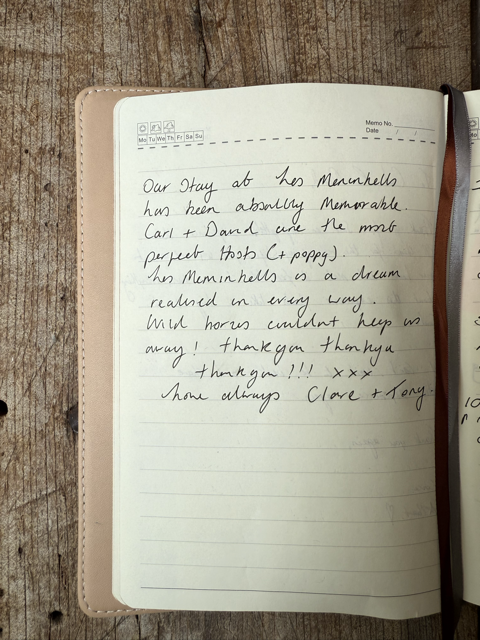 Memo No.
Mo Tu We Th Fr Sa Su
Date / /
Our Stay at Les Meninhells
has been absolutly Memorable.
Carl + David are the most
perfect Hosts (+ poppy).
Les Meminhells is a dream
realised in every way.
Wild horses couldnt keep us
away! thankyou thankyu
thankyou!!! xxx
love always Clare + Tony.
Mo
10